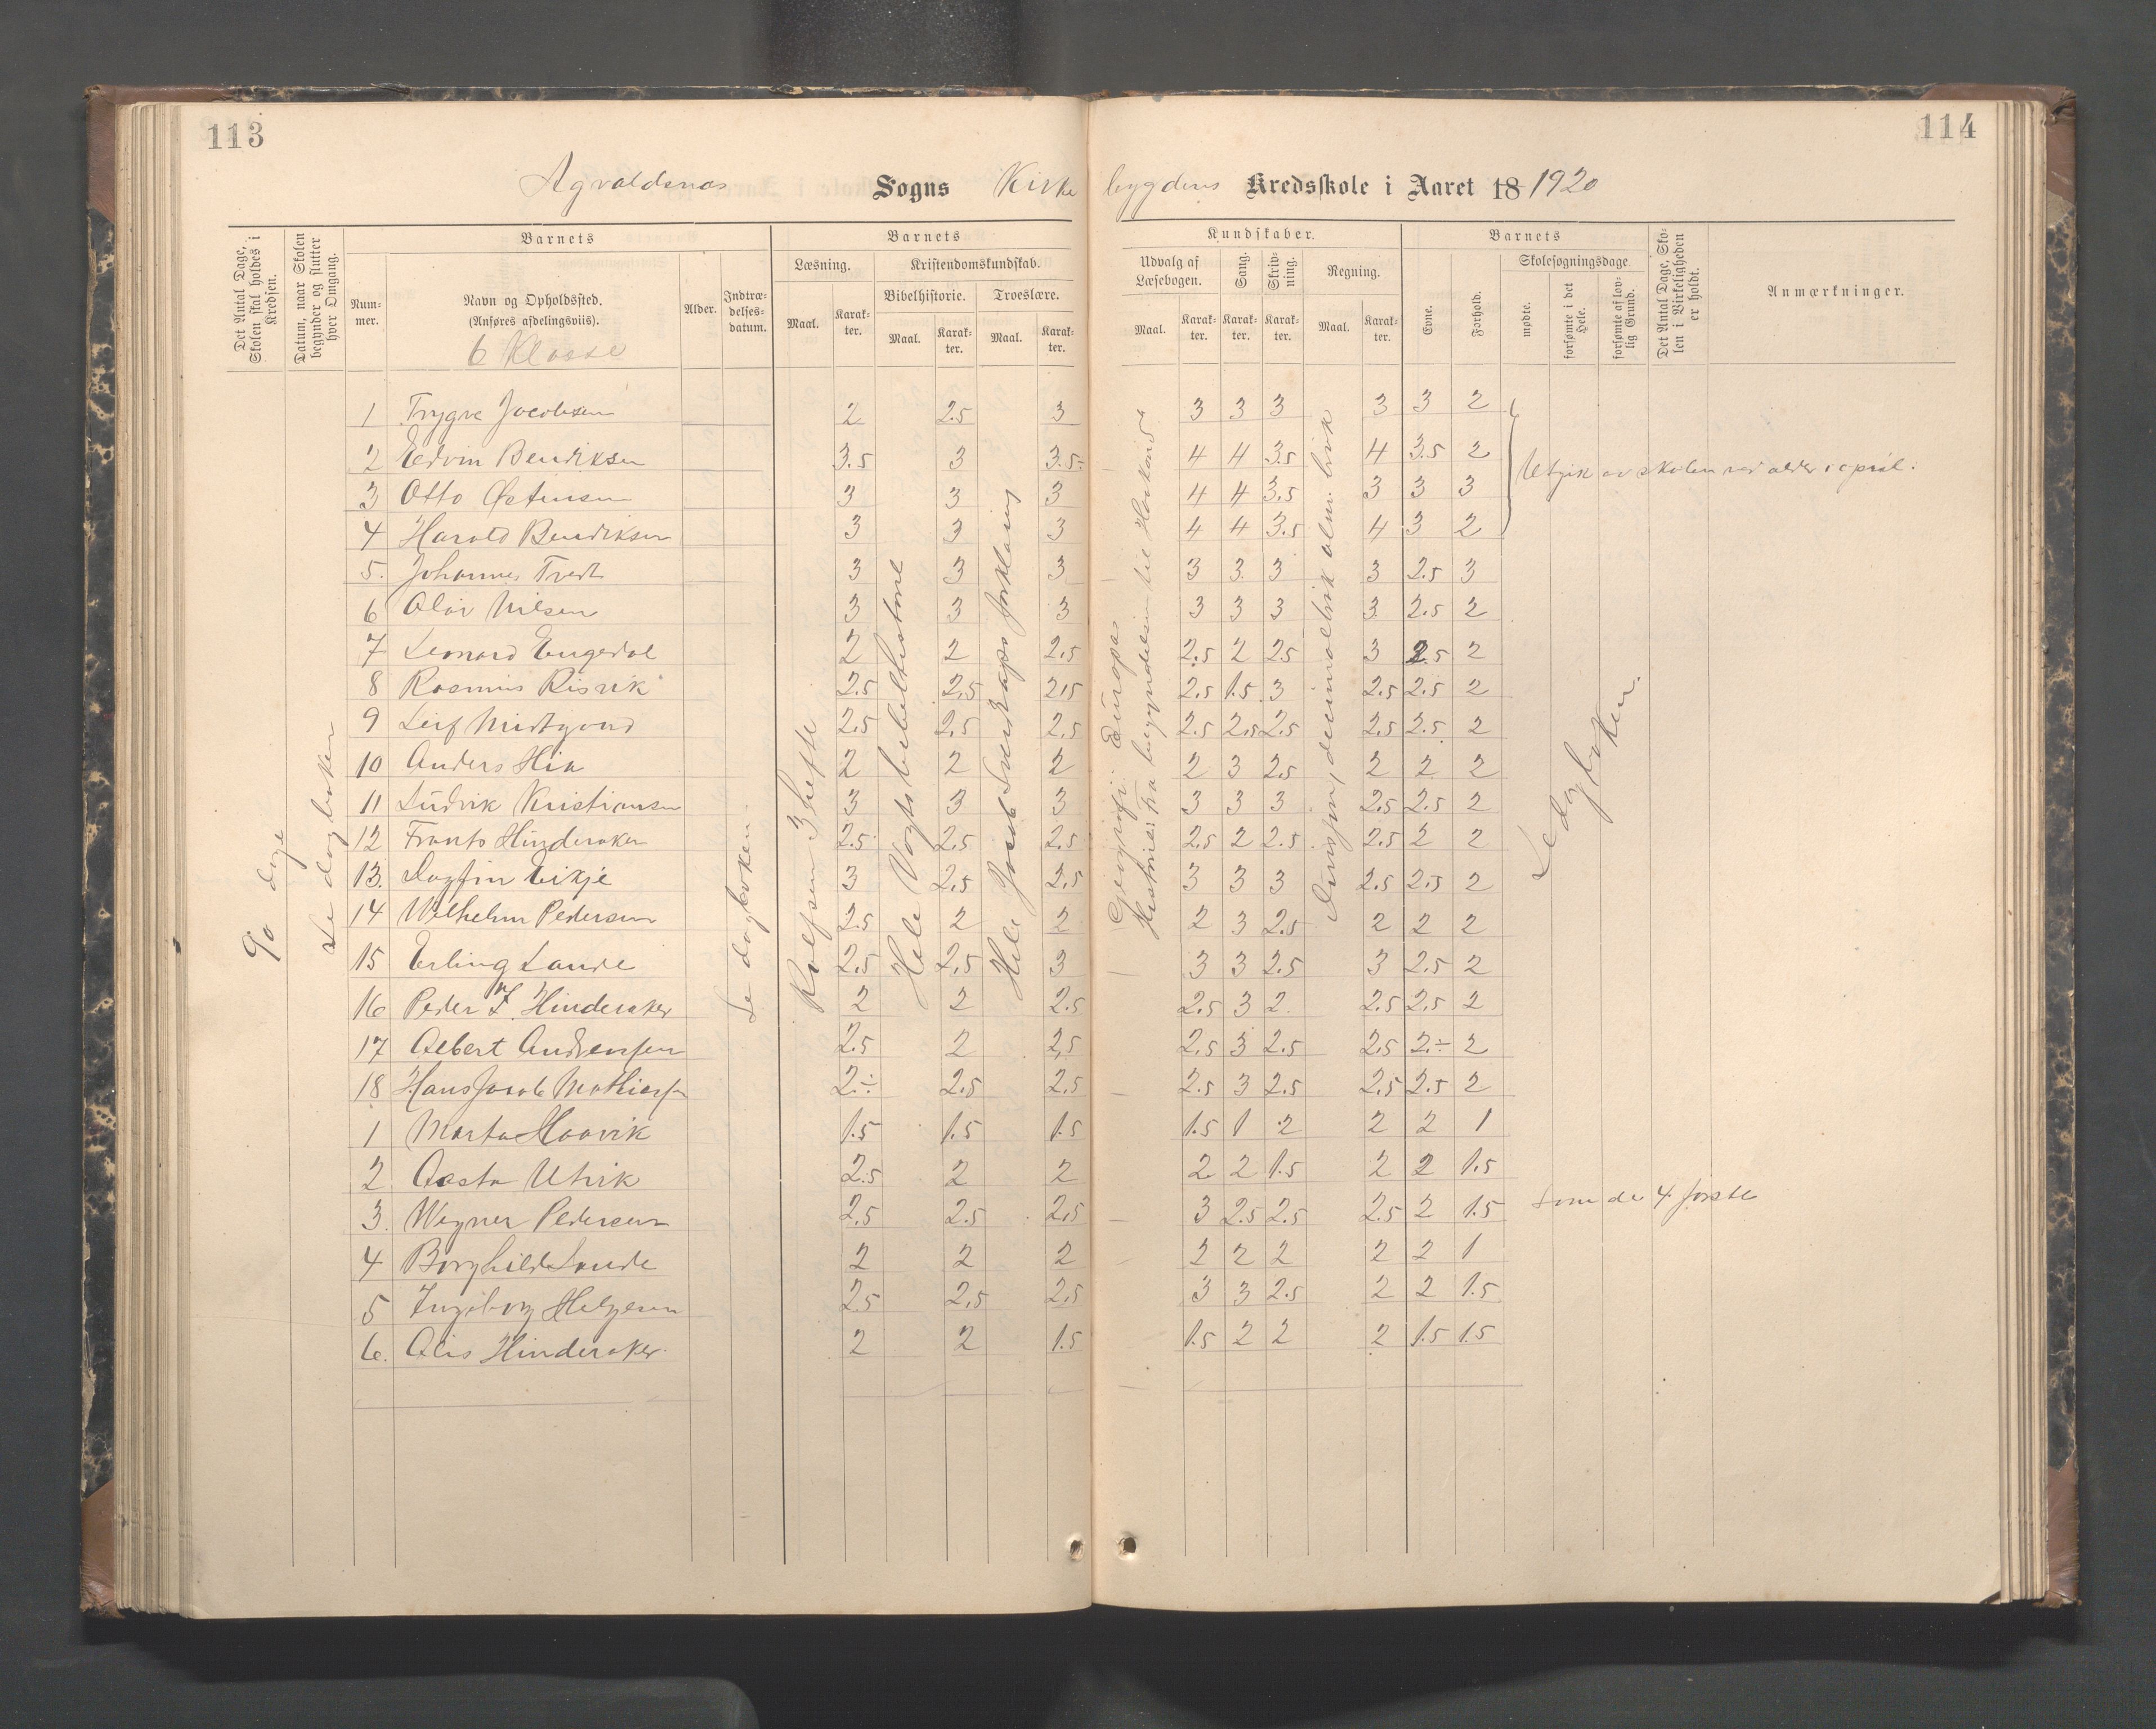 113
114
Agvaldsnes Sogns Kirke bygdens Kredsskole i Aaret 18 1920
Det Antal Dage, Skolen skal holdes i Kredsen.
Datum, naar Skolen begynder og slutter hver Omgang.
Barnets
Nummer.
Navn og Opholdssted.
(Anføres afdelingsviis).
6 Klasse
Alder.
Indtrædelsesdatum.
Barnets
Læsning.
Maal.
Karakter.
Kristendomskundskab.
Bibelhistorie.
Maal.
Karakter.
Troeslære.
Maal.
Karakter.
Kundskaber.
Udvalg af Læsebogen.
Maal.
Karakter.
Sang.
Karakter.
Skrivning.
Karakter.
Regning.
Maal.
Karakter.
Barnets
Evne.
Forhold.
Skolesøgningsdage.
mødte.
forsømte i det Hele.
forsømte af lovlig Grund.
Det Antal Dage, Skolen i Virkeligheden er holdt.
Anmærkninger.
90 dage
Se dagboken
Se dagboken
Rolfsen 3 hefte
Hele Vogts bibelhistorie
Hele Jacob Sverdrups forklaring
Geografi: Europa
Historie: fra begyndelsen til Haakon 5
Divisjon, decimalbrøk alm. brøk
Se dagboken.
1 Trygve Jacobsen 2 2.5 3 3 3 3 3 3 2
2 Edvin Bendiksen 3.5 3 3.5 4 4 3.5 4 3.5 2
Utgik av skolen ved alder i april.
3 Otto Østensen 3 3 3 4 4 3.5 3 3 3
4 Harald Bendiksen 3 3 3 4 4 3.5 4 3 2
5. Johannes Tveit 3 3 3 3 3 3 3 2.5 3
6 Olav Nilsen 3 3 3 3 3 3 3 2.5 2
7 Leonard Engedal 2 2 2.5 2.5 2 2.5 3 2.5 2
8 Rasmus Risvik 2.5 2.5 2.5 2.5 1.5 3 2.5 2.5 2
9 Leif Midtgard 2.5 2.5 2.5 2.5 2.5 2.5 2.5 2.5 2
10 Anders Hia 2 2 2 2 3 2.5 2 2 2
11 Ludvik Kristiansen 3 3 3 3 3 3 2.5 2.5 2
12 Frants Hinderaker 2.5 2.5 2.5 2.5 2 2.5 2.5 2 2
13. Dagfin Eikje 3 2.5 2.5 3 3 3 2.5 2.5 2
14 Wilhelm Pedersen 2.5 2 2 2 3 2.5 2 2 2
15 Erling Lande 2.5 2.5 3 3 3 2.5 3 2.5 2
16 Peder Hinderaker 2 2 2.5 2.5 3 2 2.5 2.5 2
17 Albert Andreassen 2.5 2 2.5 2.5 3 2.5 2.5 2.÷ 2
18 Hans Jacob Mathiassen 2.÷ 2.5 2.5 2.5 3 2.5 2.5 2.5 2
1 Marta Haavik 1.5 1.5 1.5 1.5 1 2 2 2 1
2 Aasta Utvik 2.5 2 2 2 2 1.5 2 2 1.5
3. Wagner Pedersen 2.5 2.5 2.5 3 2.5 2.5 2.5 2 1.5 Som de 4 første
4 Borghild Lande 2 2 2 2 2 2 2 2 1
5 Ingeborg Helgesen 2.5 2.5 2.5 3 3 2.5 2 2 1.5
6. Alis Hinderaker 2 2 1.5 1.5 2 2 2 1.5 1.5